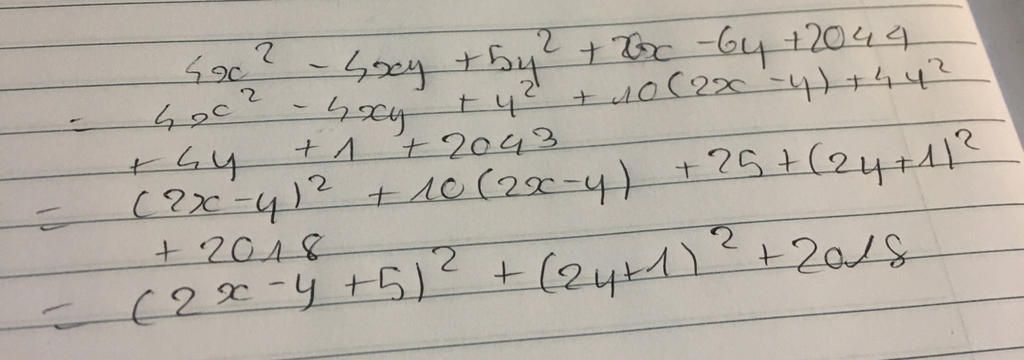 4x² - 4xy + 5y² + 20x - 6y + 2044
= 4x² - 4xy + y² + 10(2x - y) + 4y²
+ 4y + 1 + 2043
= (2x - y)² + 10(2x - y) + 25 + (2y + 1)²
+ 2018
= (2x - y + 5)² + (2y + 1)² + 2018